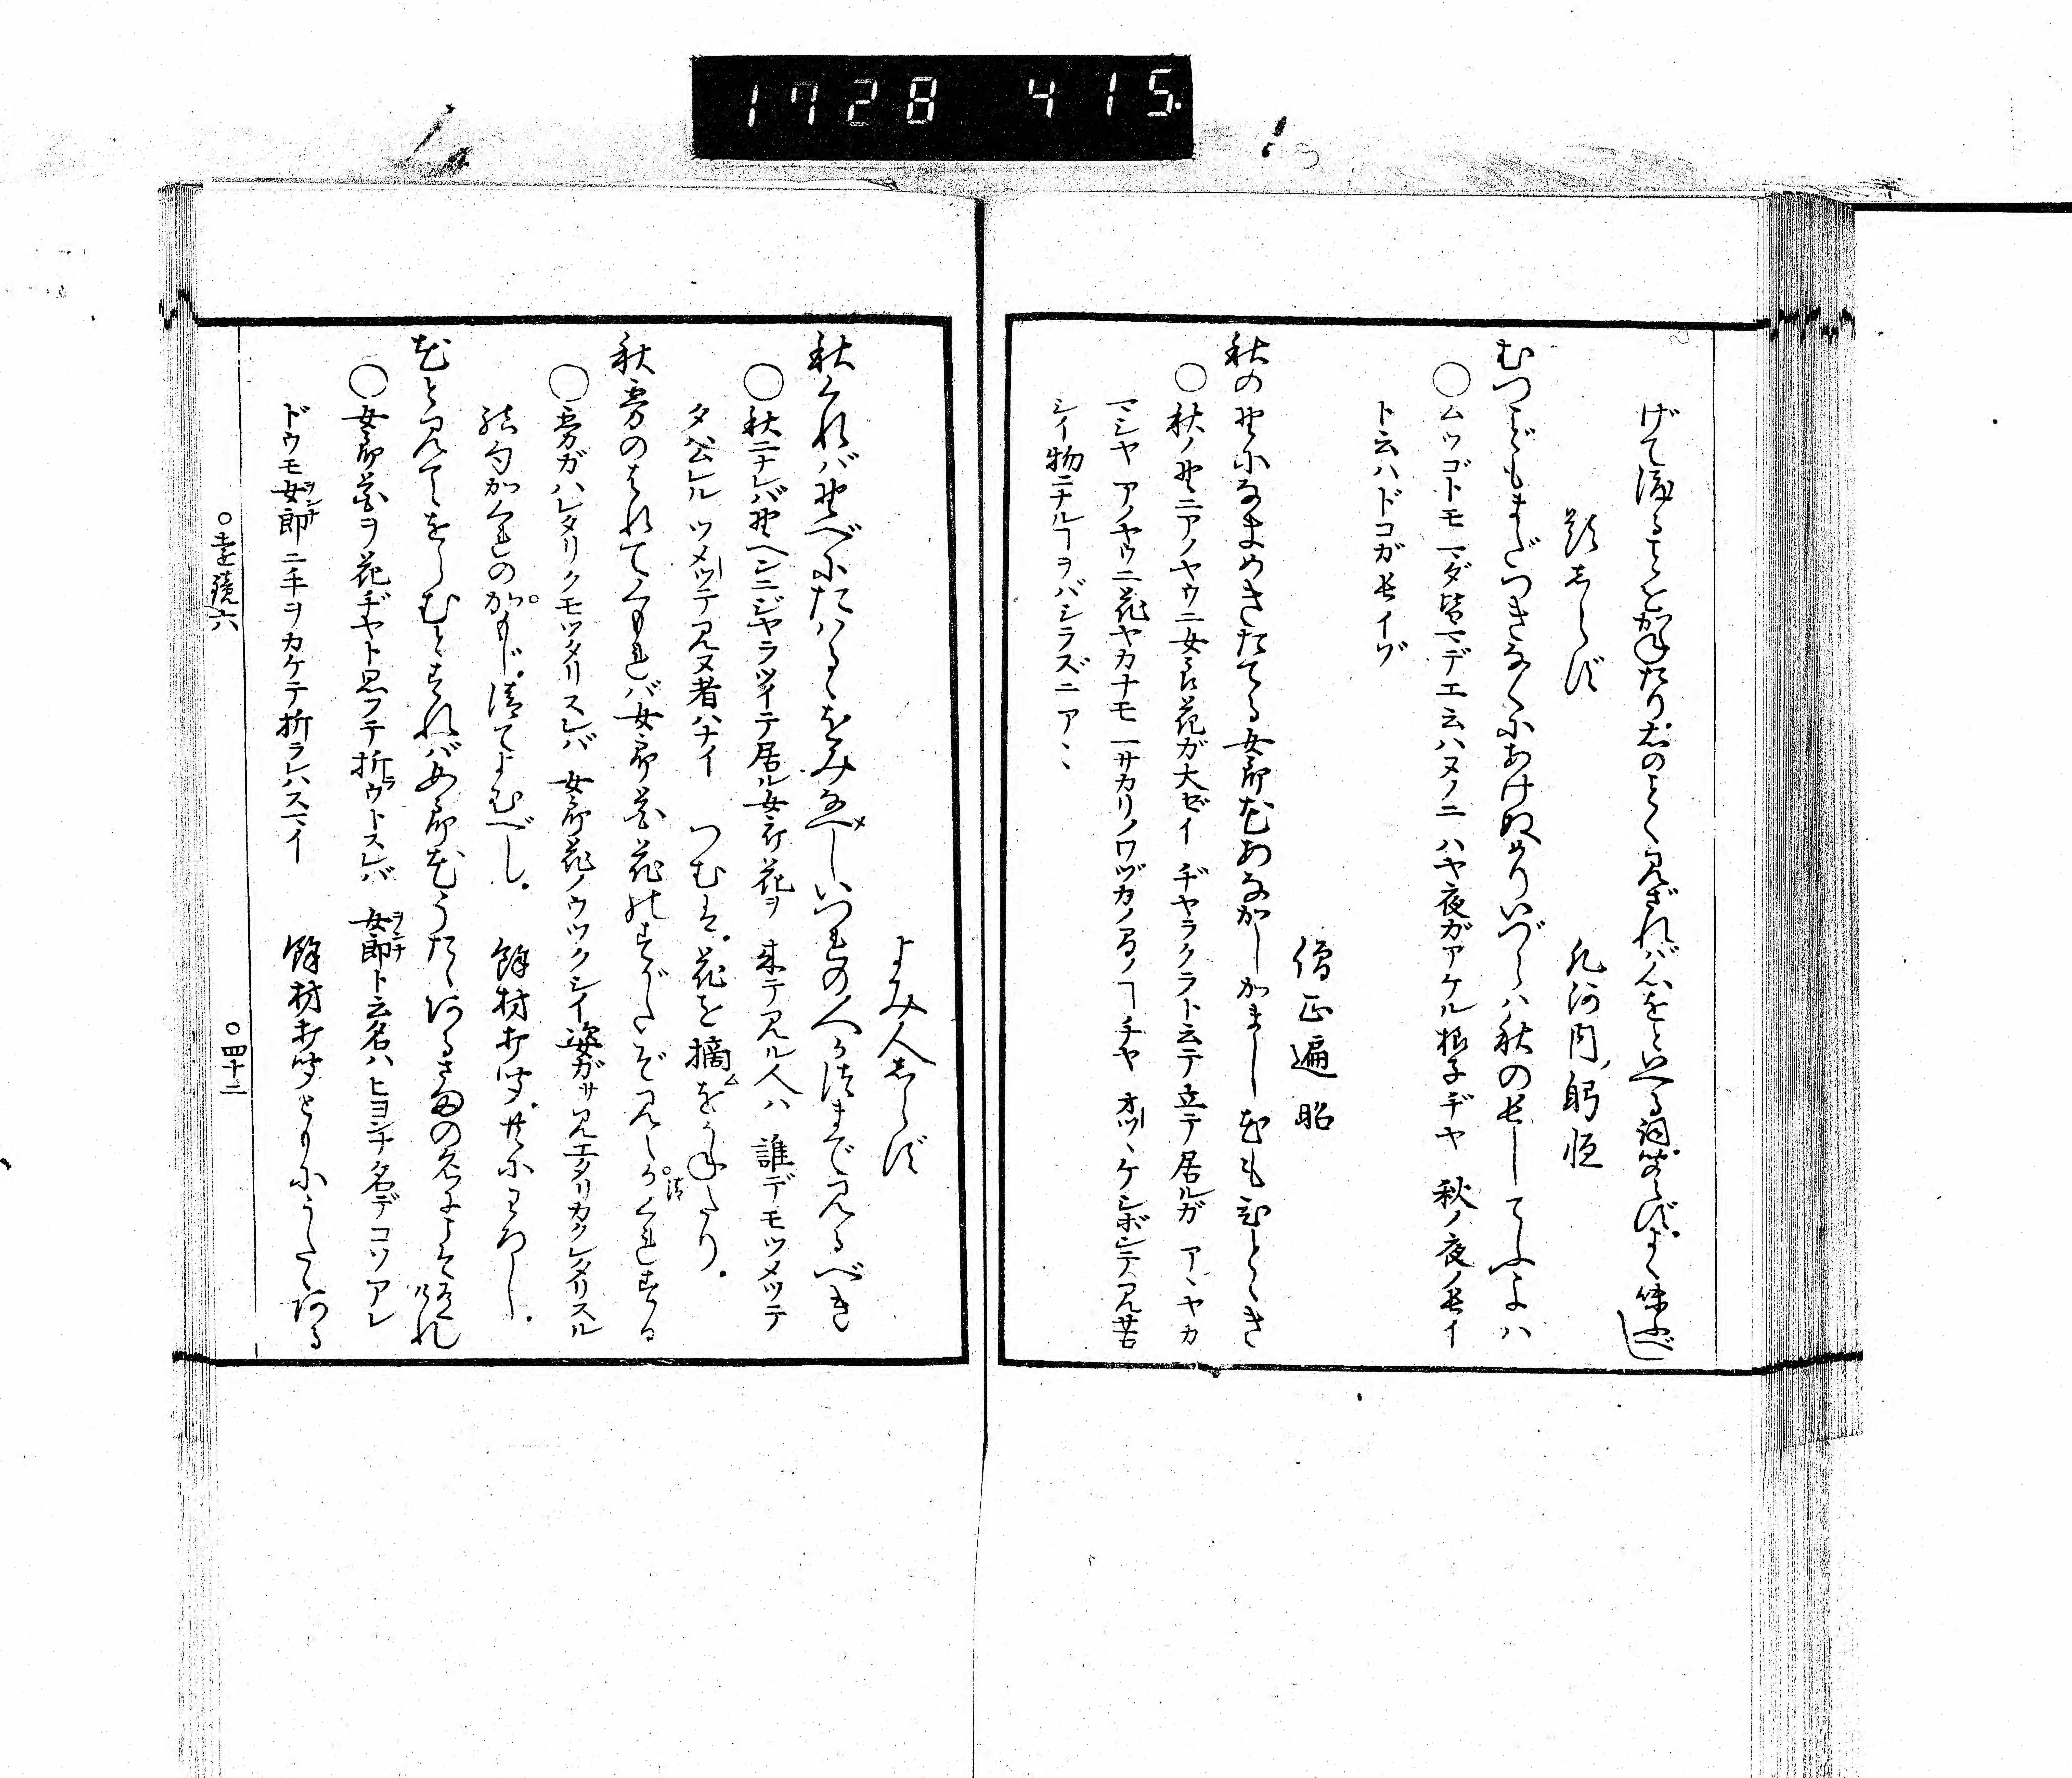 1728 415.
題しらず
凡河内躬恒
むつごともまだつきなくにあけぬめりいづらハ秋の長してふよハ
○ムツゴトモマダ皆マデエ云ハヌノニ ハヤ夜ガアケル様子ヂヤ 秋ノ夜ノ長イ
ト云ハドコガ長イゾ
僧正遍昭
秋の野になまめきたてる女郎花あなかしかまし花もひとゝき
○秋ノ野ニアノヤウニ女郎花ガ大ゼイ ヂヤラクラト云テ立テ居ルガ アヽヤカ
マシヤ アノヤウニ花ヤカナモ一サカリノワヅカノ間ノヿヂヤ オツヽケシボンデ見苦
シイ物ニナルヿヲバシラズニアヽ
よみ人しらず
秋くれバ野べにたはるゝをみなへしいづれの人かつまで見るべき
○秋ニナレバ野ヘンニジヤラツイテ居ル女郎花ヲ 来テ見ル人ハ 誰デモツメツテ
タハムレル ツメツテ見ヌ者ハナイ つむは、花を摘をかねたり。
秋霧のはれてくもれバ女郎花花のすがたぞ見えかくれする
○霧ガハレタリクモツタリスレバ 女郎花ノウツクシイ姿ガサ見エタリカクレタリスル
結句かくれのかもじ、清てよむべし。 餘材打聞、共にわろし。
花と見てをらむとすれバ女郎花うたゝあるさまの名にこそ有けれ
○女郎花ヲ花ヂヤト思フテ折ラウトスレバ 女郎ト云名ハヒヨンナ名デコソアレ
ドウモ女郎ニ手ヲカケテ折ラレハスマイ 餘材打聞ともにうたゝある
○遠鏡六
○四十二